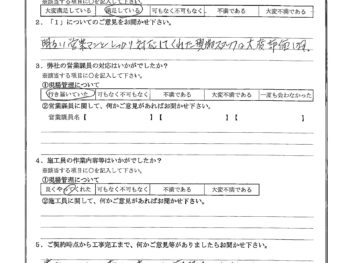 ※該当する項目に○を記入して下さい
大変満足している 満足している 可もなく不可もなく 不満である 大変不満である
2．「１」についてのご意見をお聞かせ下さい。
明るい営業マンと
3．弊社の営業課員の対応はいかがでしたか？
※該当する項目に○を記入して下さい。
①現場管理について
行き届いていた 可もなく不可もなく 不満である 大変不満である 一度も会わなかった
②営業課員に関して、何かご意見があればお聞かせ下さい。
営業課員名 【 】 【 】 【 】
4．施工員の作業内容等はいかがでしたか？
※該当する項目に○を記入して下さい。
①現場管理について
良くやってくれた 可もなく不可もなく 不満である 大変不満である
②施工員に関して、何かご意見があればお聞かせ下さい。
5．ご契約時点から工事完工まで、何かご意見等がありましたらお聞かせ下さい。